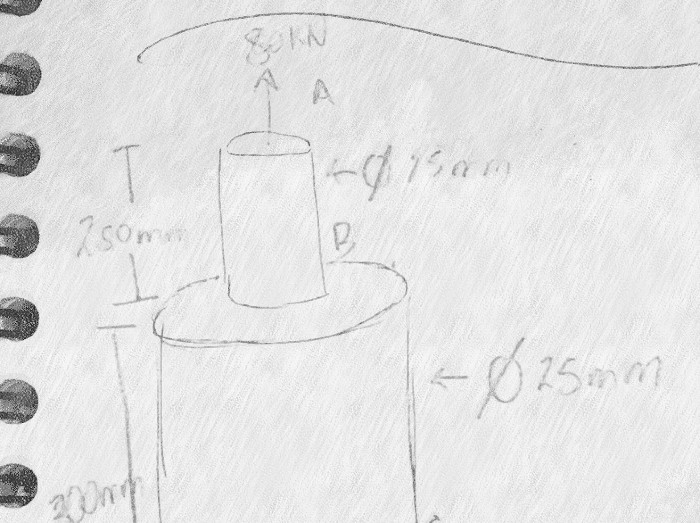 80KN
A
Ø 15mm
250mm
B
Ø 25mm
300mm